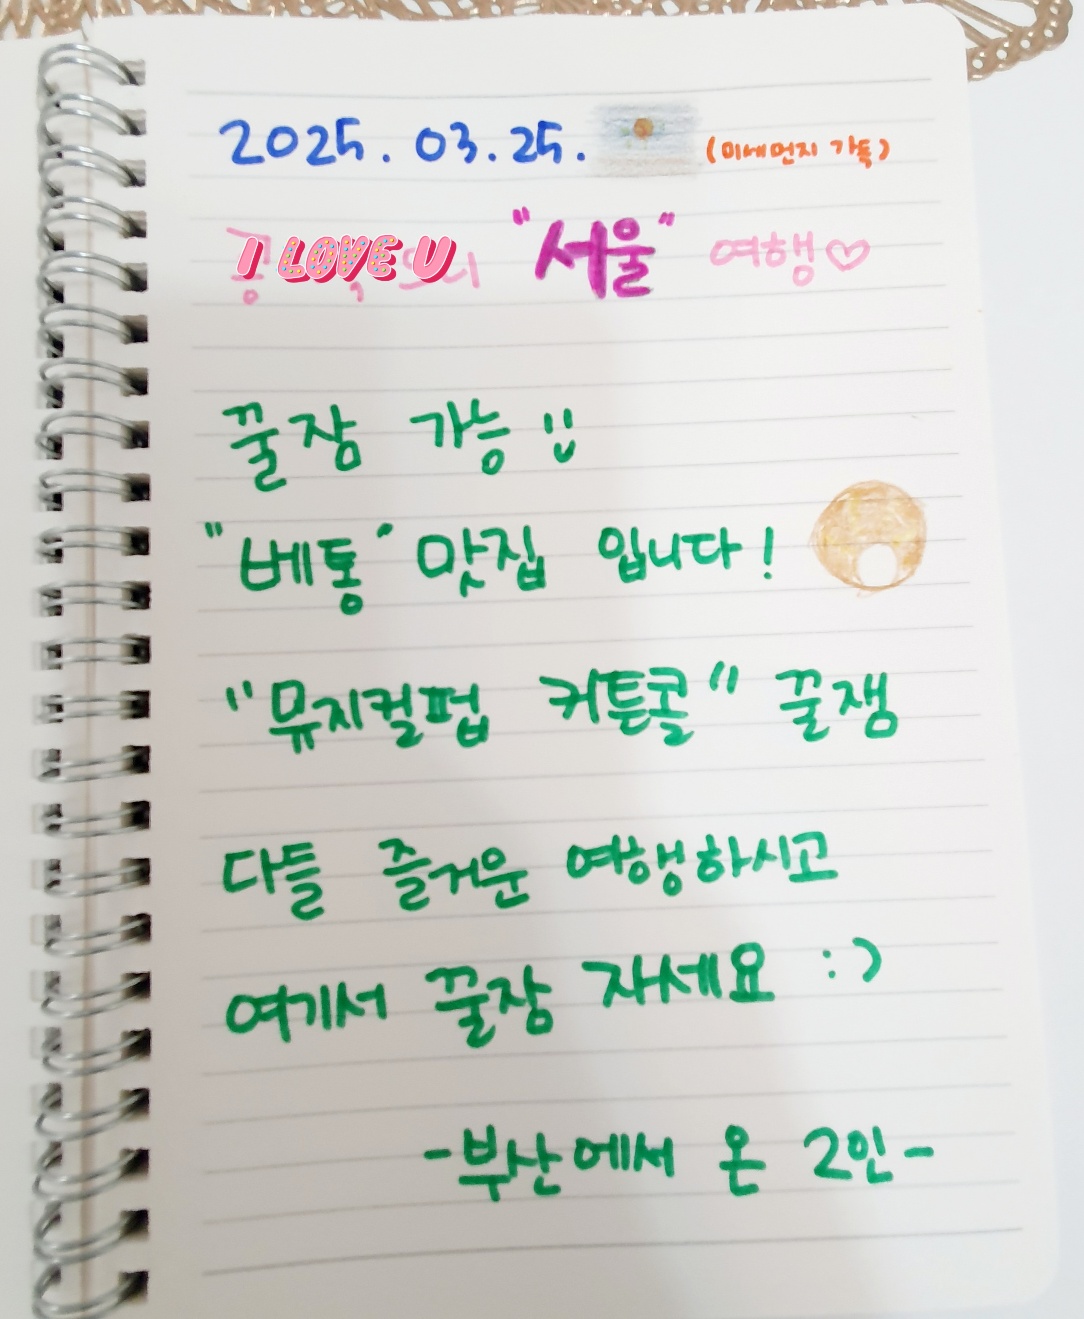 2025. 03. 25. (미세먼지 가득)
I LOVE U "서울" 여행♡
꿀잠 가능
"베통" 맛집 입니다!
"뮤지컬펍 커튼콜" 꿀잼
다들 즐거운 여행하시고
여기서 꿀잠 자세요 :)
-부산에서 온 2인-